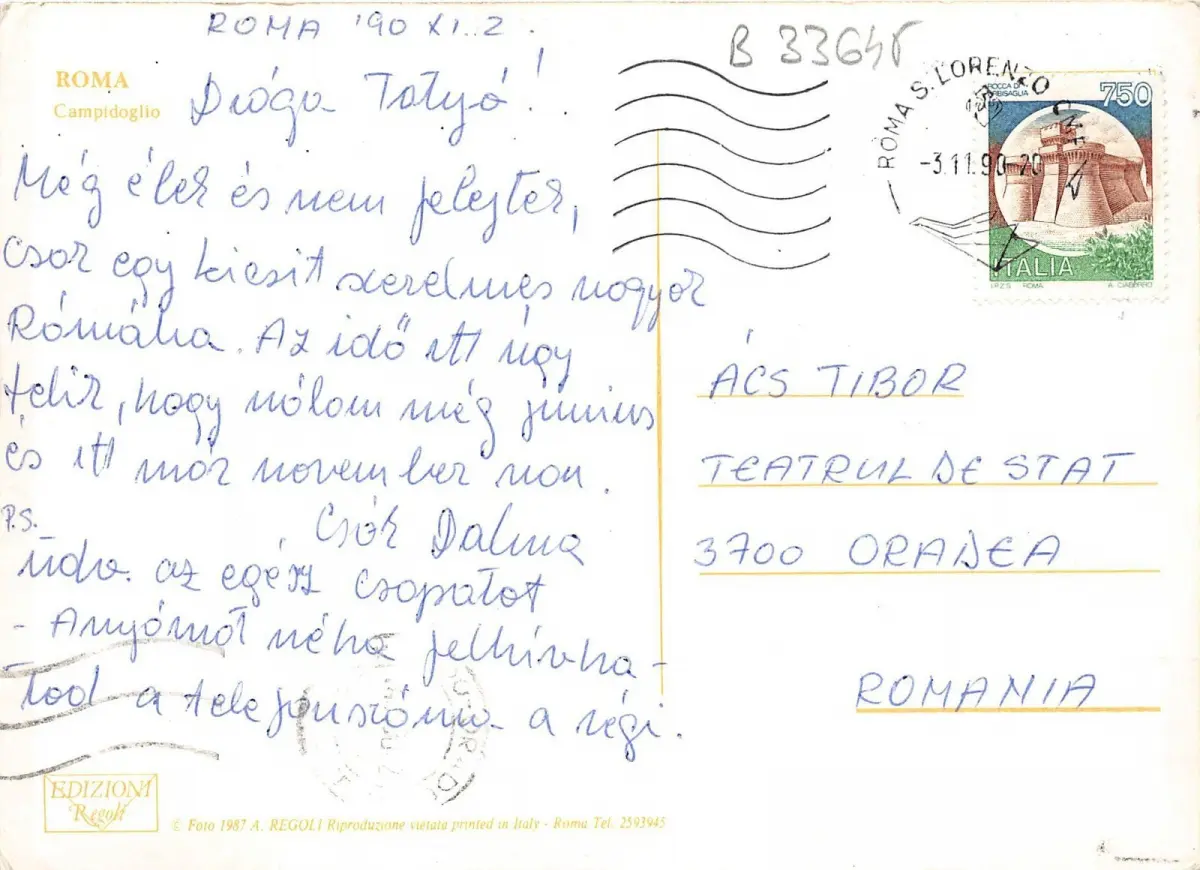 ROMA '90 XI. 2.
B 3364
ROMA
Campidoglio
Drága Totyó!
Még élek és nem felejtek,
csak egy kicsit szerelmes vagyok
Rómába. Az idő itt úgy
telik, hogy nálam még június
és itt már november van.
Csók Dalma
P.S.
Üdv. az egész csapatot
- Anyámat néha felhívha-
tod a telefonszáma a régi.
ROMA S. LORENZO
-3.11.90-20
ROCCA DI
URBISAGLIA
750
ITALIA
I.P.Z.S. ROMA
ÁCS TIBOR
TEATRUL DE STAT
3700 ORADEA
ROMANIA
EDIZIONI
Regoli
© Foto 1987 A. REGOLI Riproduzione vietata printed in Italy - Roma Tel. 2593945